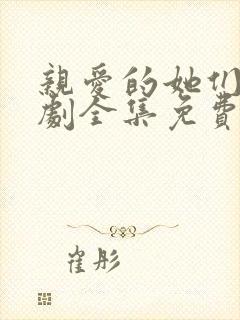 親愛的她们
劇全集免費
崔彤